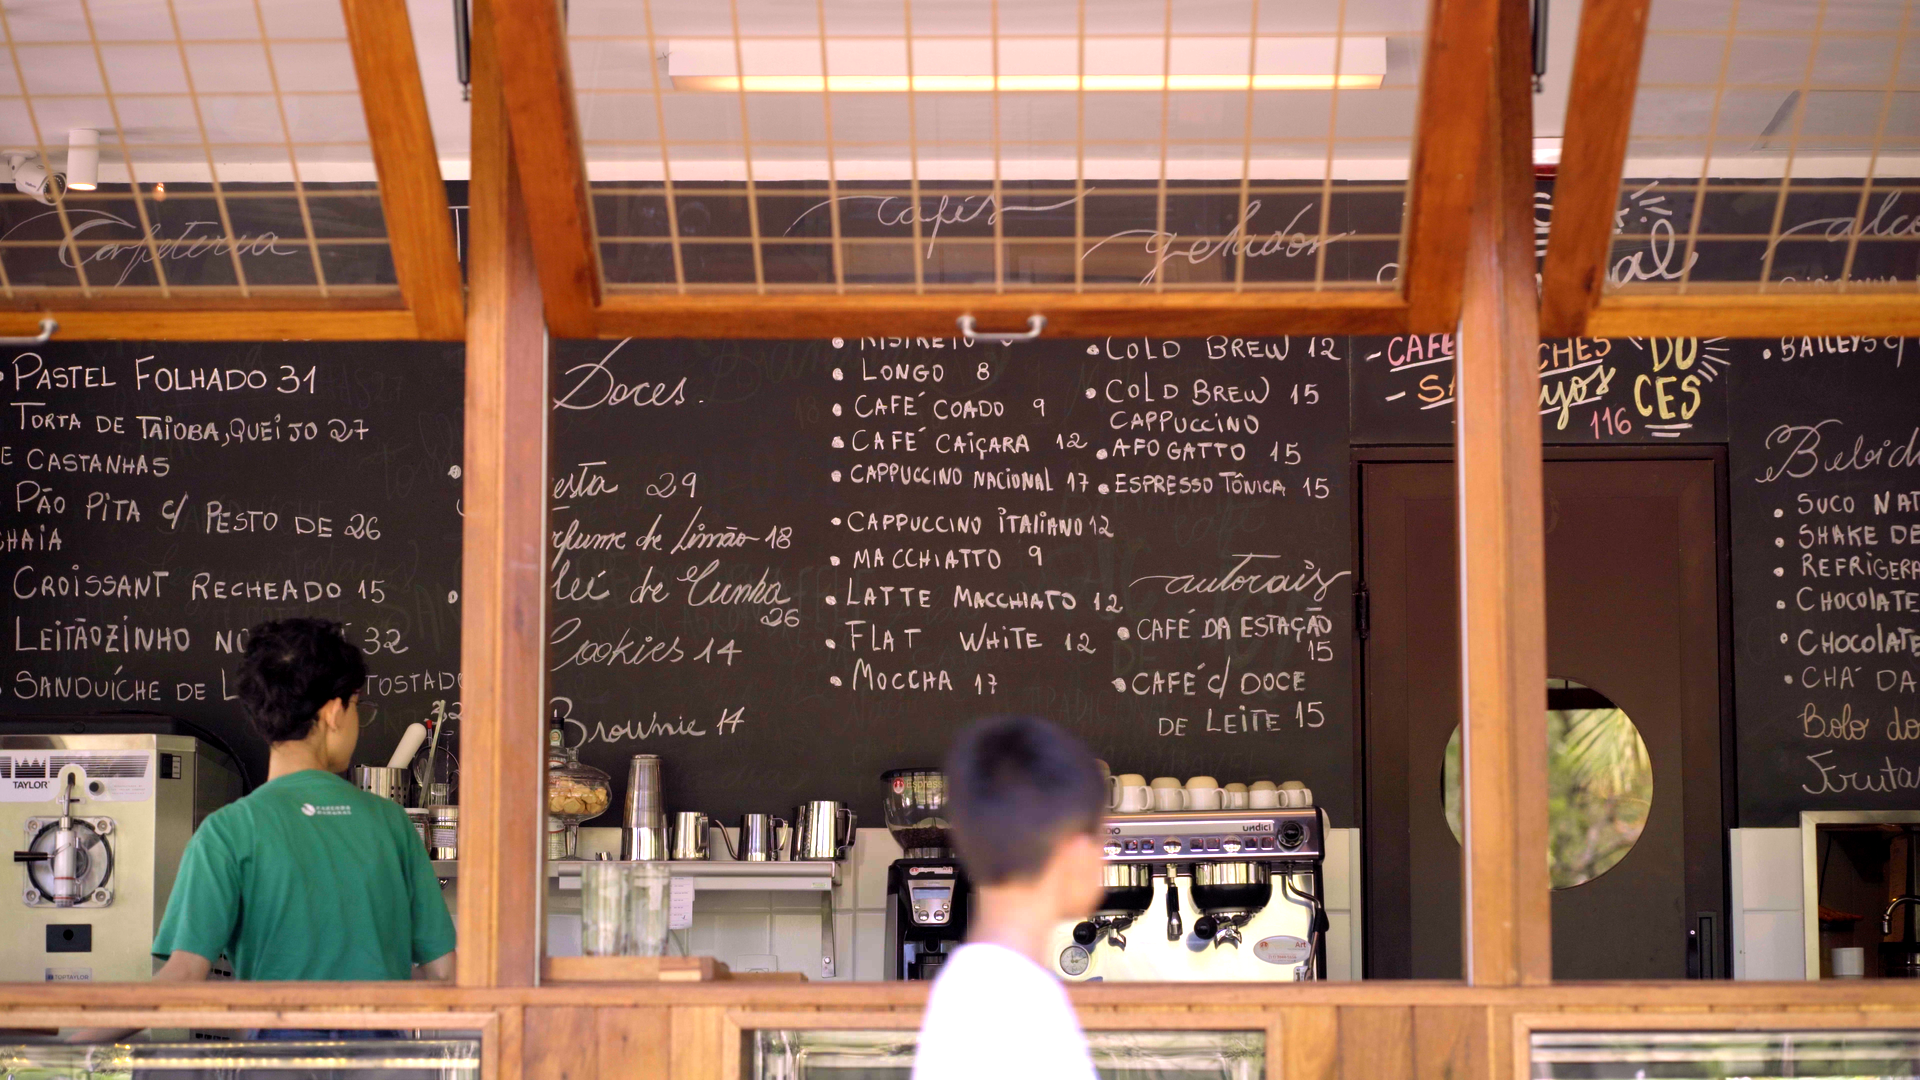 Cafeteria
PASTEL FOLHADO 31
TORTA DE TAIOBA, QUEIJO 27
E CASTANHAS
PÃO PITA C/ PESTO DE 26
CROISSANT RECHEADO 15
LEITÃOZINHO NO 32
SANDUÍCHE DE TOSTADO
32
Doces.
29
de Limão 18
de Cunha
26
Cookies 14
Brownie 14
cafés
LONGO 8
CAFÉ COADO 9
CAFÉ CAIÇARA 12
CAPPUCCINO NACIONAL 17
CAPPUCCINO ITALIANO 12
MACCHIATTO 9
LATTE MACCHIATO 12
FLAT WHITE 12
MOCCHA 17
gelados
COLD BREW 12
COLD BREW 15
CAPPUCCINO
AFOGATTO 15
ESPRESSO TÔNICA 15
autorais
CAFÉ DA ESTAÇÃO
15
CAFÉ C/ DOCE
DE LEITE 15
DO
CES
116
BAILEYS C/
SUCO
SHAKE DE
CHOCOLATE
CHOCOLATE
CHÁ DA
Bolo do
TAYLOR
undici